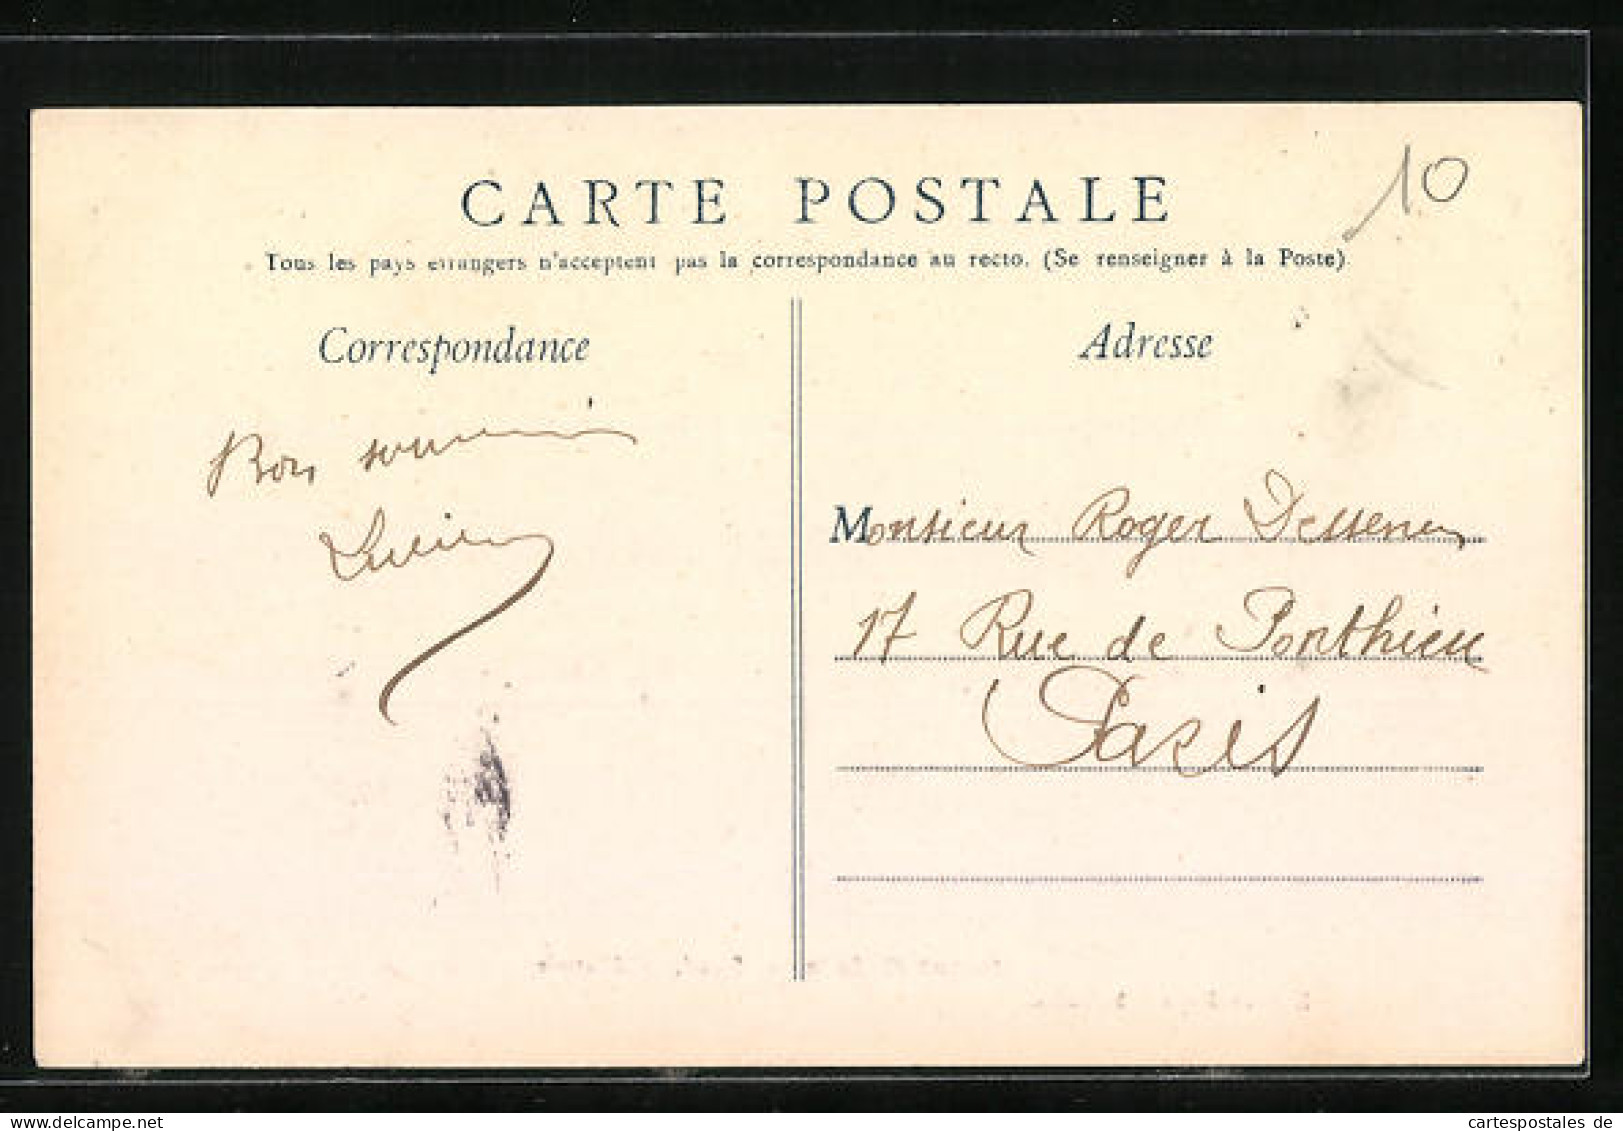 CARTE POSTALE
10
Tous les pays étrangers n'acceptent pas la correspondance au recto. (Se renseigner à la Poste)
Correspondance
Bon souvenir
Lucien
Adresse
Monsieur Roger
17 Rue de Ponthieu
Paris
www.cartespostales.de
cartespostales de